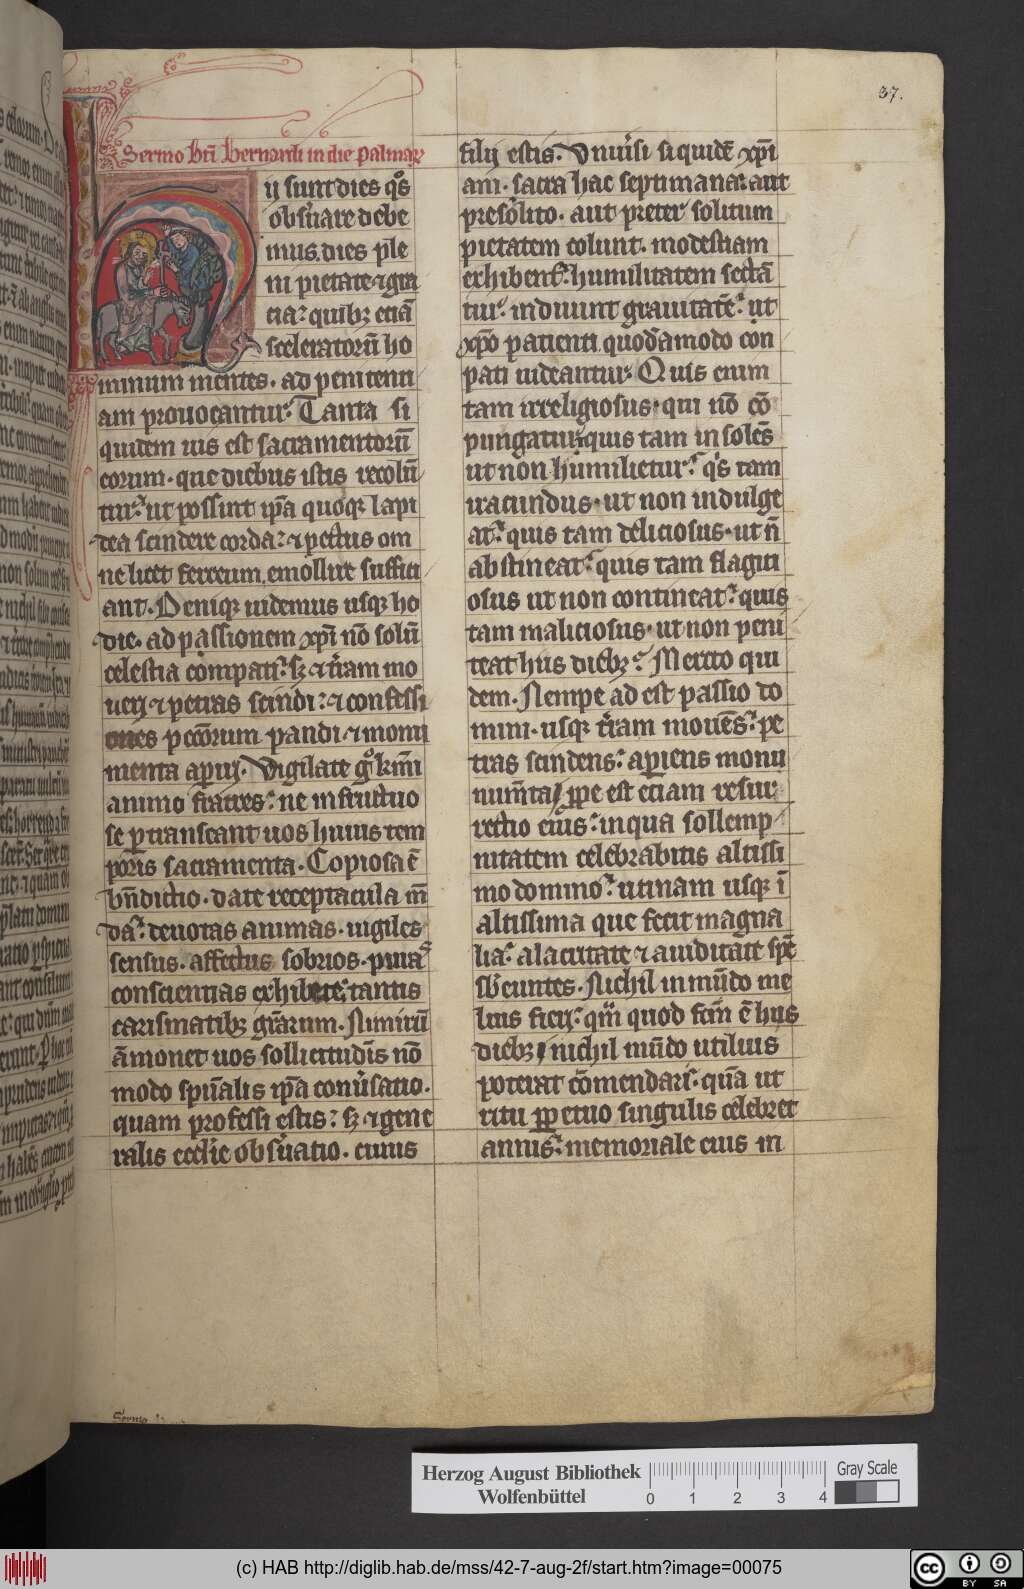 37.
Sermo btī Bernardi in die palmaꝝ
Hij sunt dies qͦs
obsͥuare debe
mus. dies ple
ni pietate ⁊ gra
cia: quibꝫ etiā
sceleratorū ho
minum mentes. ad peniteni
am prouocantur: Tanta si
quidem uis est sacramentorū
eorum. que diebus istis recolū
tur: ut possint ip̄a quoqꝫ lapi
dea scindere corda: ⁊ pectus om
ne licet ferreum, emollire suffici
ant. Deniqꝫ uidemus usqꝫ ho
die. ad passionem xp̄i nō solū
celestia cōpati: sꝫ ⁊ t̄ram mo
ueri ⁊ petras scindi: ⁊ confessi
ones pcc̄orum pandi. ⁊ monu
menta aꝑiri. Vigilate gͦ kmī
animo fratres: ne infructuo
se ꝑtranseant uos huius tem
poris sacramenta. Copiosa ē
bn̄dictio. date receptacula m̄
da: deuotas animas. uigiles
sensus. affectus sobrios. puras
conscientias exhibete: tantis
carismatibꝫ grārum. Nimirū
āmonet uos sollicitudīs nō
modo spūalis ip̄a conūsatio.
quam professi estis: sꝫ ⁊ gene
ralis eccl̄ie obsͥuatio. cuius
filij estis. Vniūsi siquidē xp̄i
ani. sacra hac septimana: aut
pre solito. aut preter solitum
pietatem colunt. modestiam
exhibent: humilitatem sectā
tur: induunt grauitatē: ut
xp̄o patienti quodāmodo con
pati uideantur: Quis enim
tam irreligiosus. qui nō cō
pungatur: quis tam insolēs
ut non humilietur: qͥs tam
iracundus. ut non indulge
at: quis tam deliciosus. ut n̄
abstineat: quis tam flagici
osus ut non contineat: quis
tam maliciosus. ut non peni
teat hiis diebꝫ: Merito qui
dem. Nempe adest passio do
mini. usqꝫ t̄ram mouēs: pe
tras scindens: aperiens monu
mn̄ta. Prope est etiam resur
rectio eius: in qua sollemp
nitatem celebrabitis altissi
mo domino: utinam usqꝫ ī
altissima que fecit magna
lia: alacritate ⁊ auiditate spē
sb̄euntes. Nichil in mūdo me
lius fieri: qm̄ quod fcm̄ ē hiis
diebꝫ. nichil mūdo utilius
poterat cōmendari: quā ut
ritu ꝑpetuo singulis celebret
annis: memoriale eius in
Herzog August Bibliothek
Wolfenbüttel
0 1 2 3 4
Gray Scale
(c) HAB http://diglib.hab.de/mss/42-7-aug-2f/start.htm?image=00075
cc BY SA